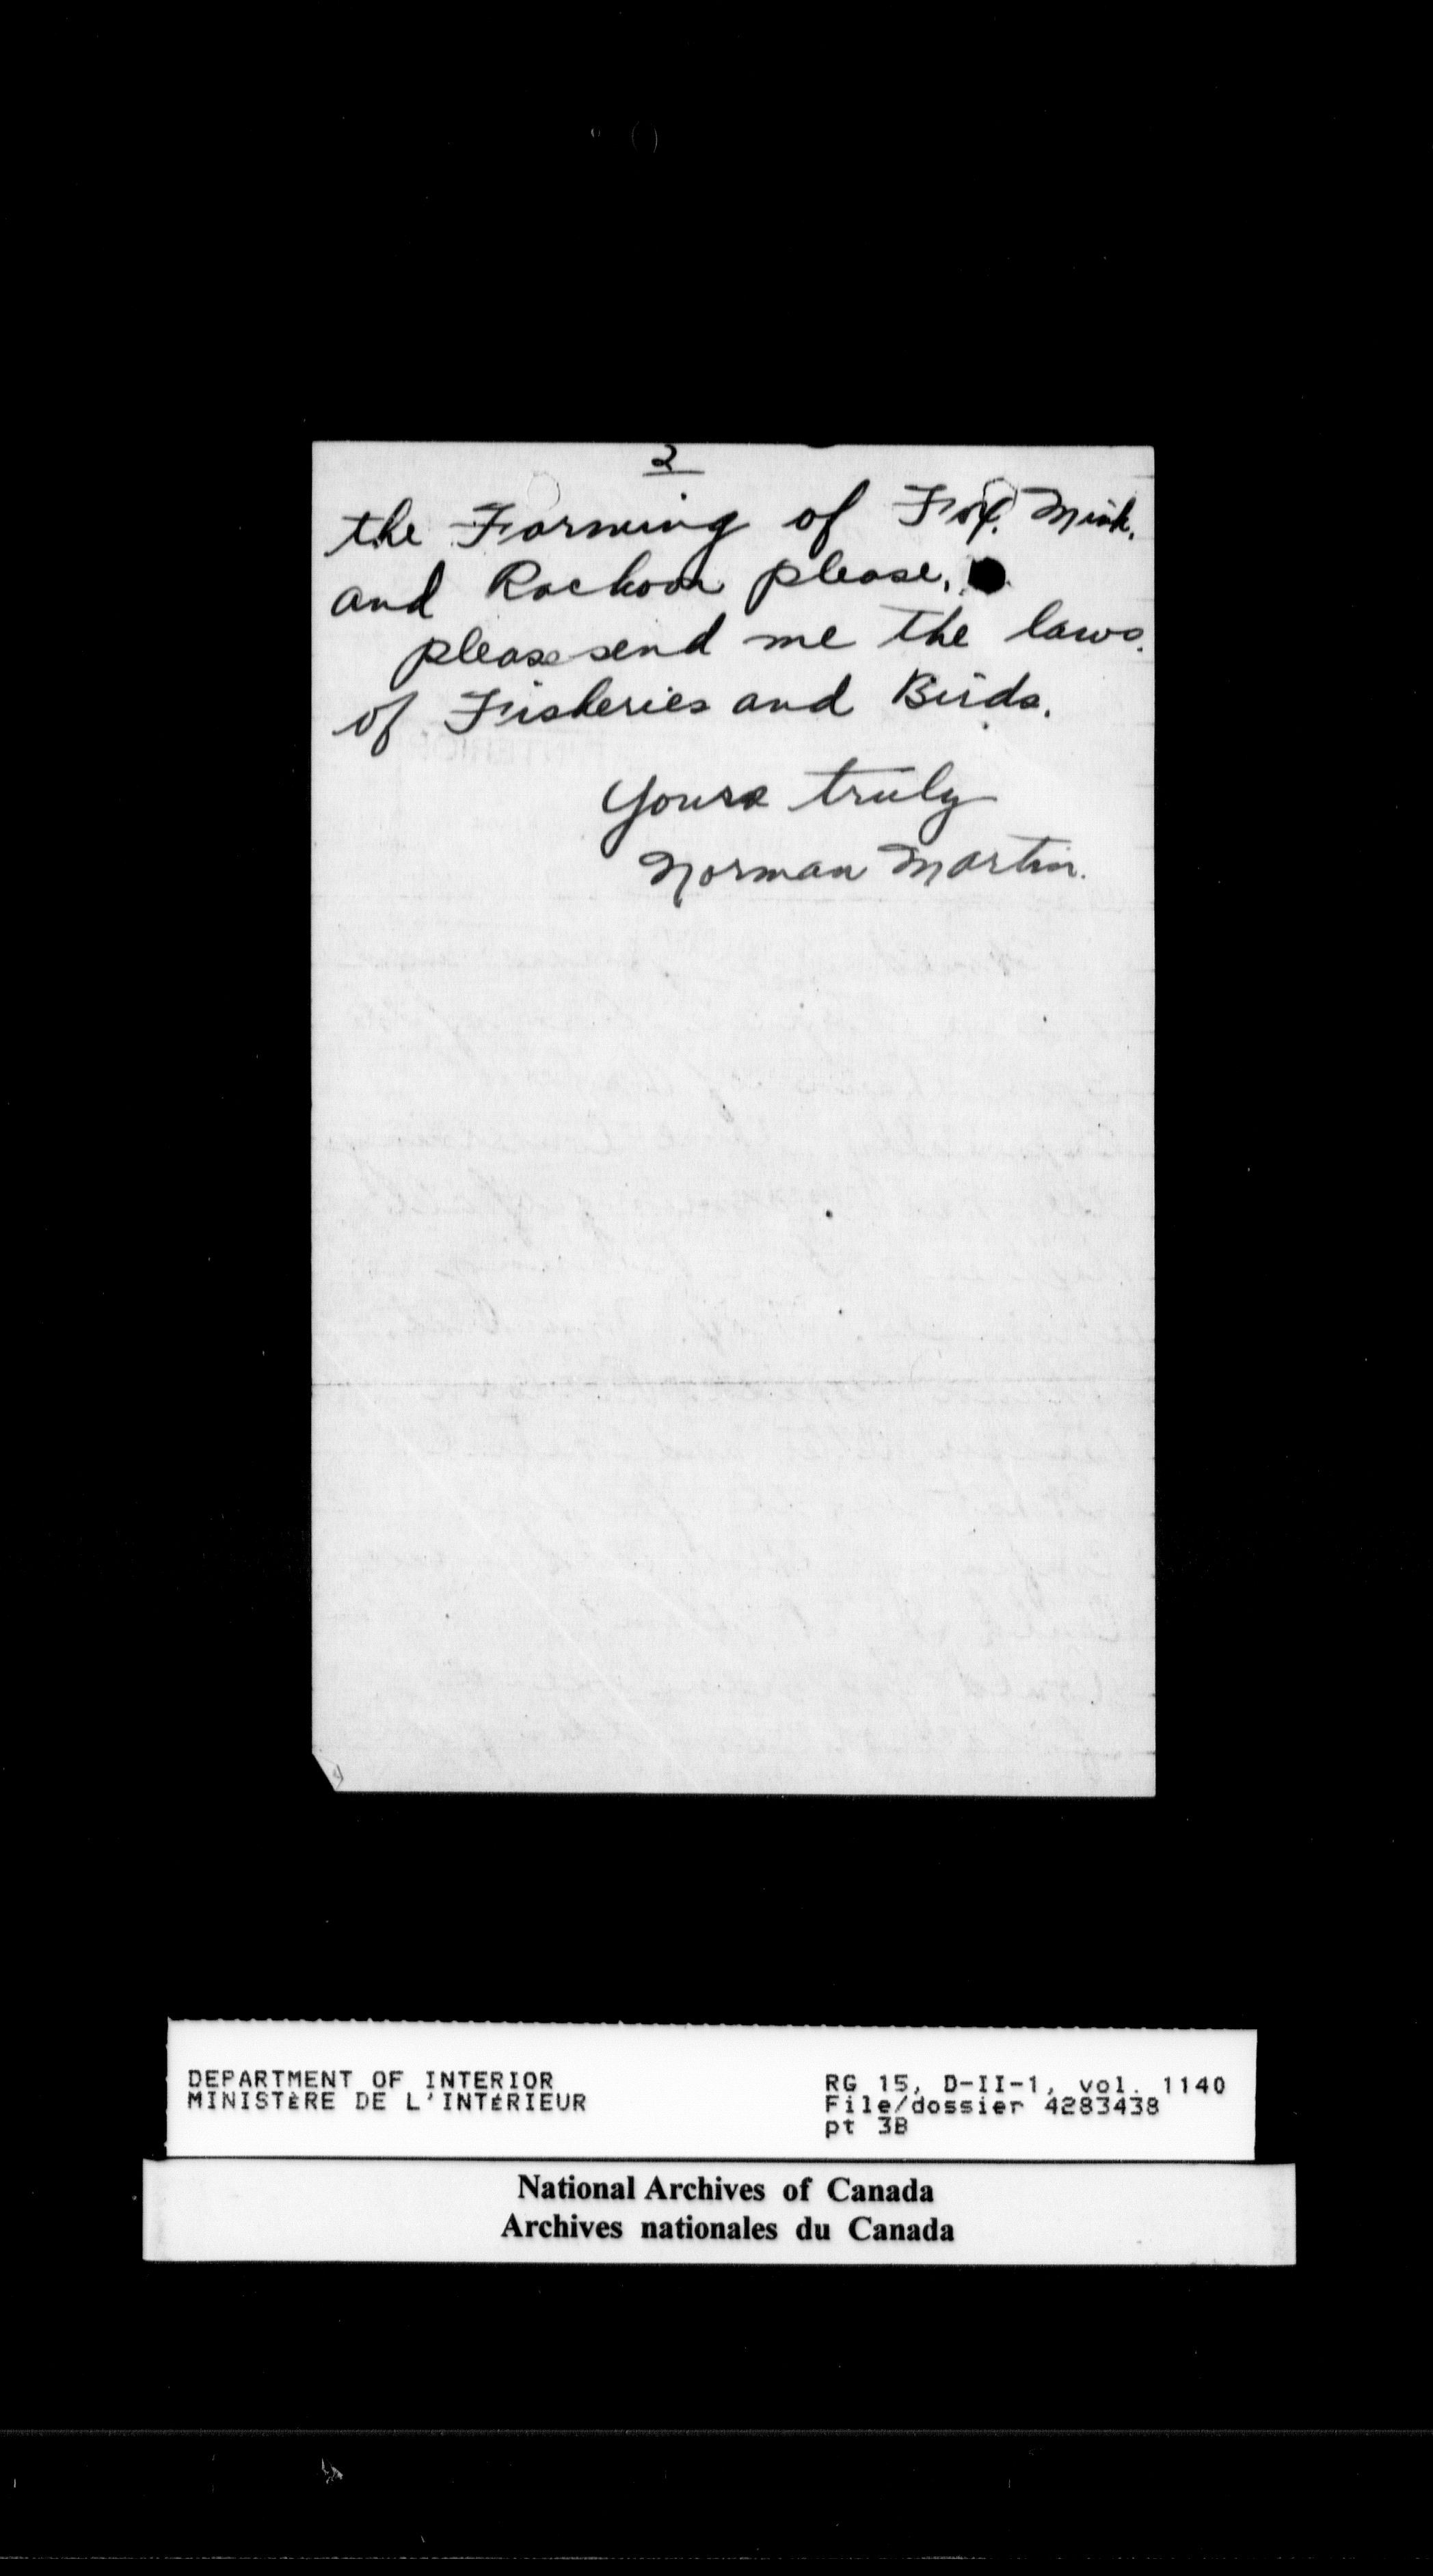 2
the Farming of Fox. Mink.
and Rackoon please.
please send me the laws.
of Fisheries and Birds.
Yours truly
Norman Martin.
DEPARTMENT OF INTERIOR
MINISTÈRE DE L'INTÉRIEUR
RG 15, D-II-1, vol. 1140
File/dossier 4283438
pt 3B
National Archives of Canada
Archives nationales du Canada